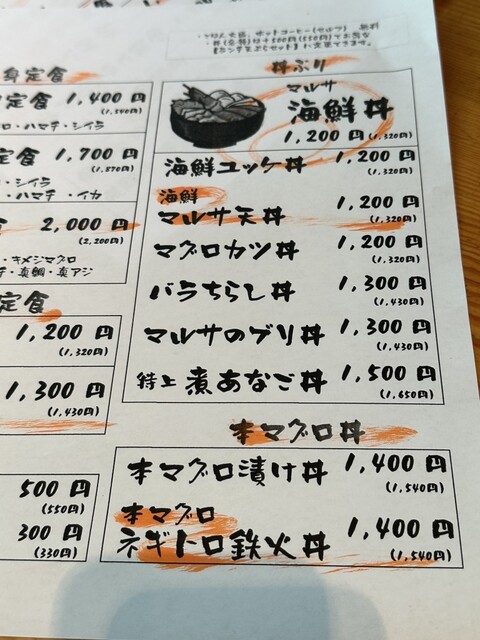 身定食
定食 1,400円
(1,540円)
ロ・ハマチ・シイラ
定食 1,700円
(1,870円)
・シイラ
・ハマチ・イカ
2,000円
(2,200円)
・キメジマグロ
・真鯛・真アジ
定食
1,200円
(1,320円)
1,300円
(1,430円)
500円
(550円)
300円
(330円)
丼ぶり
マルサ
海鮮丼
1,200円(1,320円)
海鮮ユッケ丼 1,200円
(1,320円)
海鮮
マルサ天丼 1,200円
(1,320円)
マグロカツ丼 1,200円
(1,320円)
バラちらし丼 1,300円
(1,430円)
マルサのブリ丼 1,300円
(1,430円)
特上 煮あなご丼 1,500円
(1,650円)
本マグロ丼
本マグロ漬け丼 1,400円
(1,540円)
本マグロ
ネギトロ鉄火丼 1,400円
(1,540円)